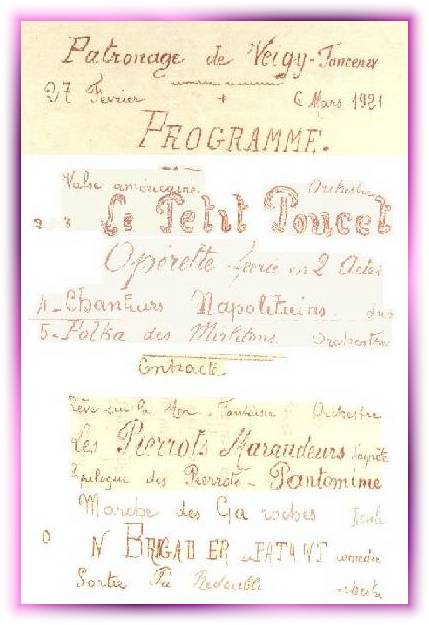 Patronage de Veigy-Foncenex
27 Fevrier + 6 Mars 1921
PROGRAMME.
Valse américaine. Orchestre
2 3 Le Petit Poucet
Opérette féerie en 2 Actes
4-Chanteurs Napolitains. duo
5-Polka des Mirlitons. Orchestre
Entracte.
Rêve sur la Mer - Fantaisie Orchestre
Les Pierrots Maraudeurs Saynète
Epilogue des Pierrots - Pantomime
Marche des Ga oches
N BRIGADIER EPATANT comédie
Sortie Pas Redoublé